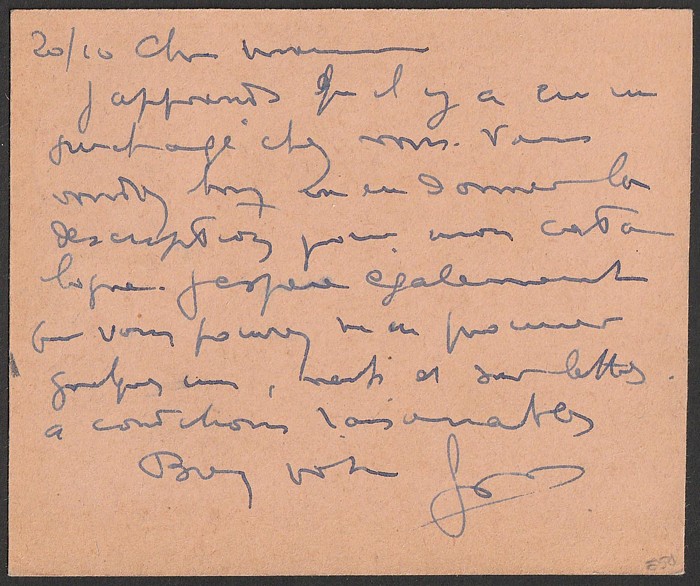 20/10 Cher monsieur
J'apprends qu'il y a eu un
surchargé chez vous. Vous
voudrez bien m'en donner la
description pour mon cata
logue. J'espère également
que vous pourrez m'en procurer
quelques uns, neufs et sur lettres.
a conditions raisonnables
Bien votre